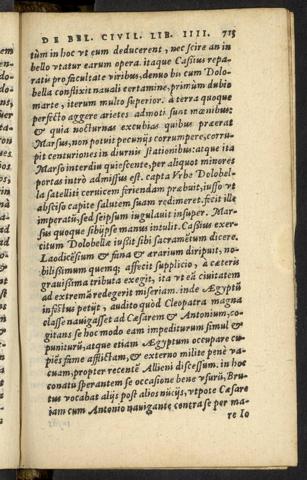 DE BEL. CIVIL. LIB. IIII. 715
tùm in hoc vt eum deducerent, nec scire an in
bello vtatur earum opera. itaque Caßius repa-
ratis pro facultate viribus, denuo bis cum Dolo-
bella conflixit nauali certamine, primùm dubio
marte, iterum multo superior. à terra quoque
perfecto aggere arietes admoti sunt mœnibus:
& quia nocturnas excubias quibus præerat
Marsus, non potuit pecunijs corrumpere, corru-
pit centuriones in diurnis stationibus: atque ita
Marso interdiu quiescente, per aliquot minores
portas intrò admissus est. capta Vrbe Dolobel-
la satelliti ceruicem feriendam præbuit, iusso vt
absciso capite salutem suam redimeret. fecit ille
imperatū, sed seipsum iugulauit insuper. Mar-
sus quoque sibijpse manus intulit. Caßius exer-
citum Dolobellæ iußit sibi sacramētum dicere.
Laodicësium & fana & ærarium diripuit, no-
bilißimum quemq; affecit supplicio, à cæteris
grauißima tributa exegit, ita vt eā ciuitatem
ad extremā redegerit miseriam. inde Ægyptū
infēstus petijt, audito quòd Cleopatra magna
classe nauigasset ad Cæsarem & Antonium, co-
gitans se hoc modo eam impediturum simul &
puniturū, atque etiam Ægyptum occupare cu-
piēs fame afflictam, & externo milite penè va-
cuam, propter recentē Allieni discessum. in hoc
conatu sperantem se occasione bene vsurū, Bru-
tus vocabat alijs post alios nūcijs, vtpote Cæsare
iam cum Antonio nauigante contra se per ma-
re Io